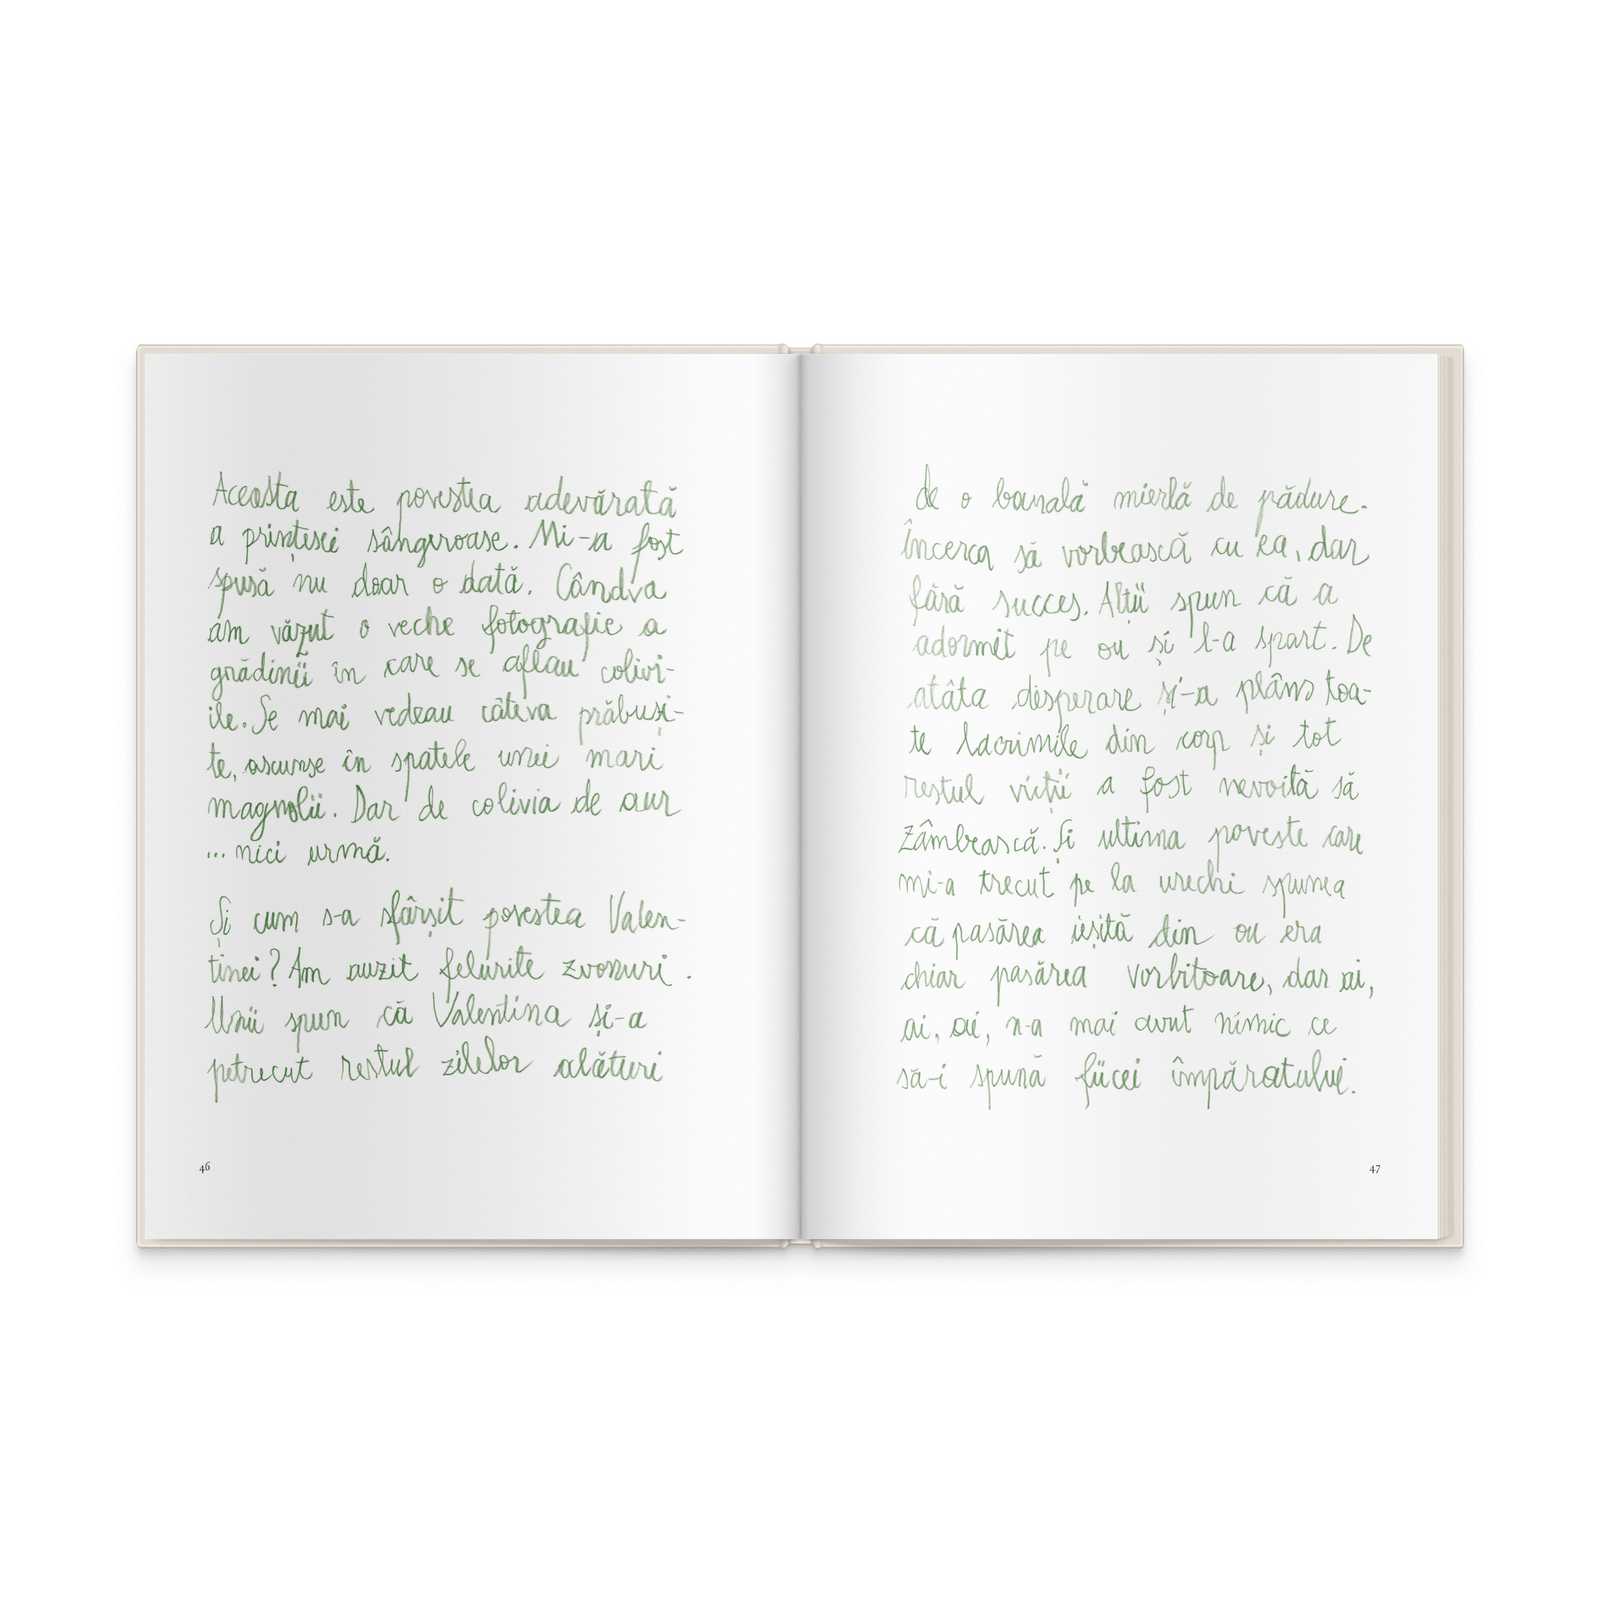 Aceasta este povestea adevărată
a prințesei sângeroase. Mi-a fost
spusă nu doar o dată. Cândva
am văzut o veche fotografie a
grădinii în care se aflau colivi-
ile. Se mai vedeau câteva prăbuși-
te, ascunse în spatele unei mari
magnolii. Dar de colivia de aur
... nici urmă.
Și cum s-a sfârșit povestea Valen-
tinei? Am auzit felurite zvonuri.
Unii spun că Valentina și-a
petrecut restul zilelor alături
46
de o banală mierlă de pădure.
Încerca să vorbească cu ea, dar
fără succes. Alții spun că a
adormit pe ou și l-a spart. De
atâta desperare și-a plâns toa-
te lacrimile din corp și tot
restul vieții a fost nevoită să
zâmbească. Și ultima poveste care
mi-a trecut pe la urechi spunea
că pasărea ieșită din ou era
chiar pasărea vorbitoare, dar ai,
ai, ai, n-a mai avut nimic ce
să-i spună fiicei împăratului.
47